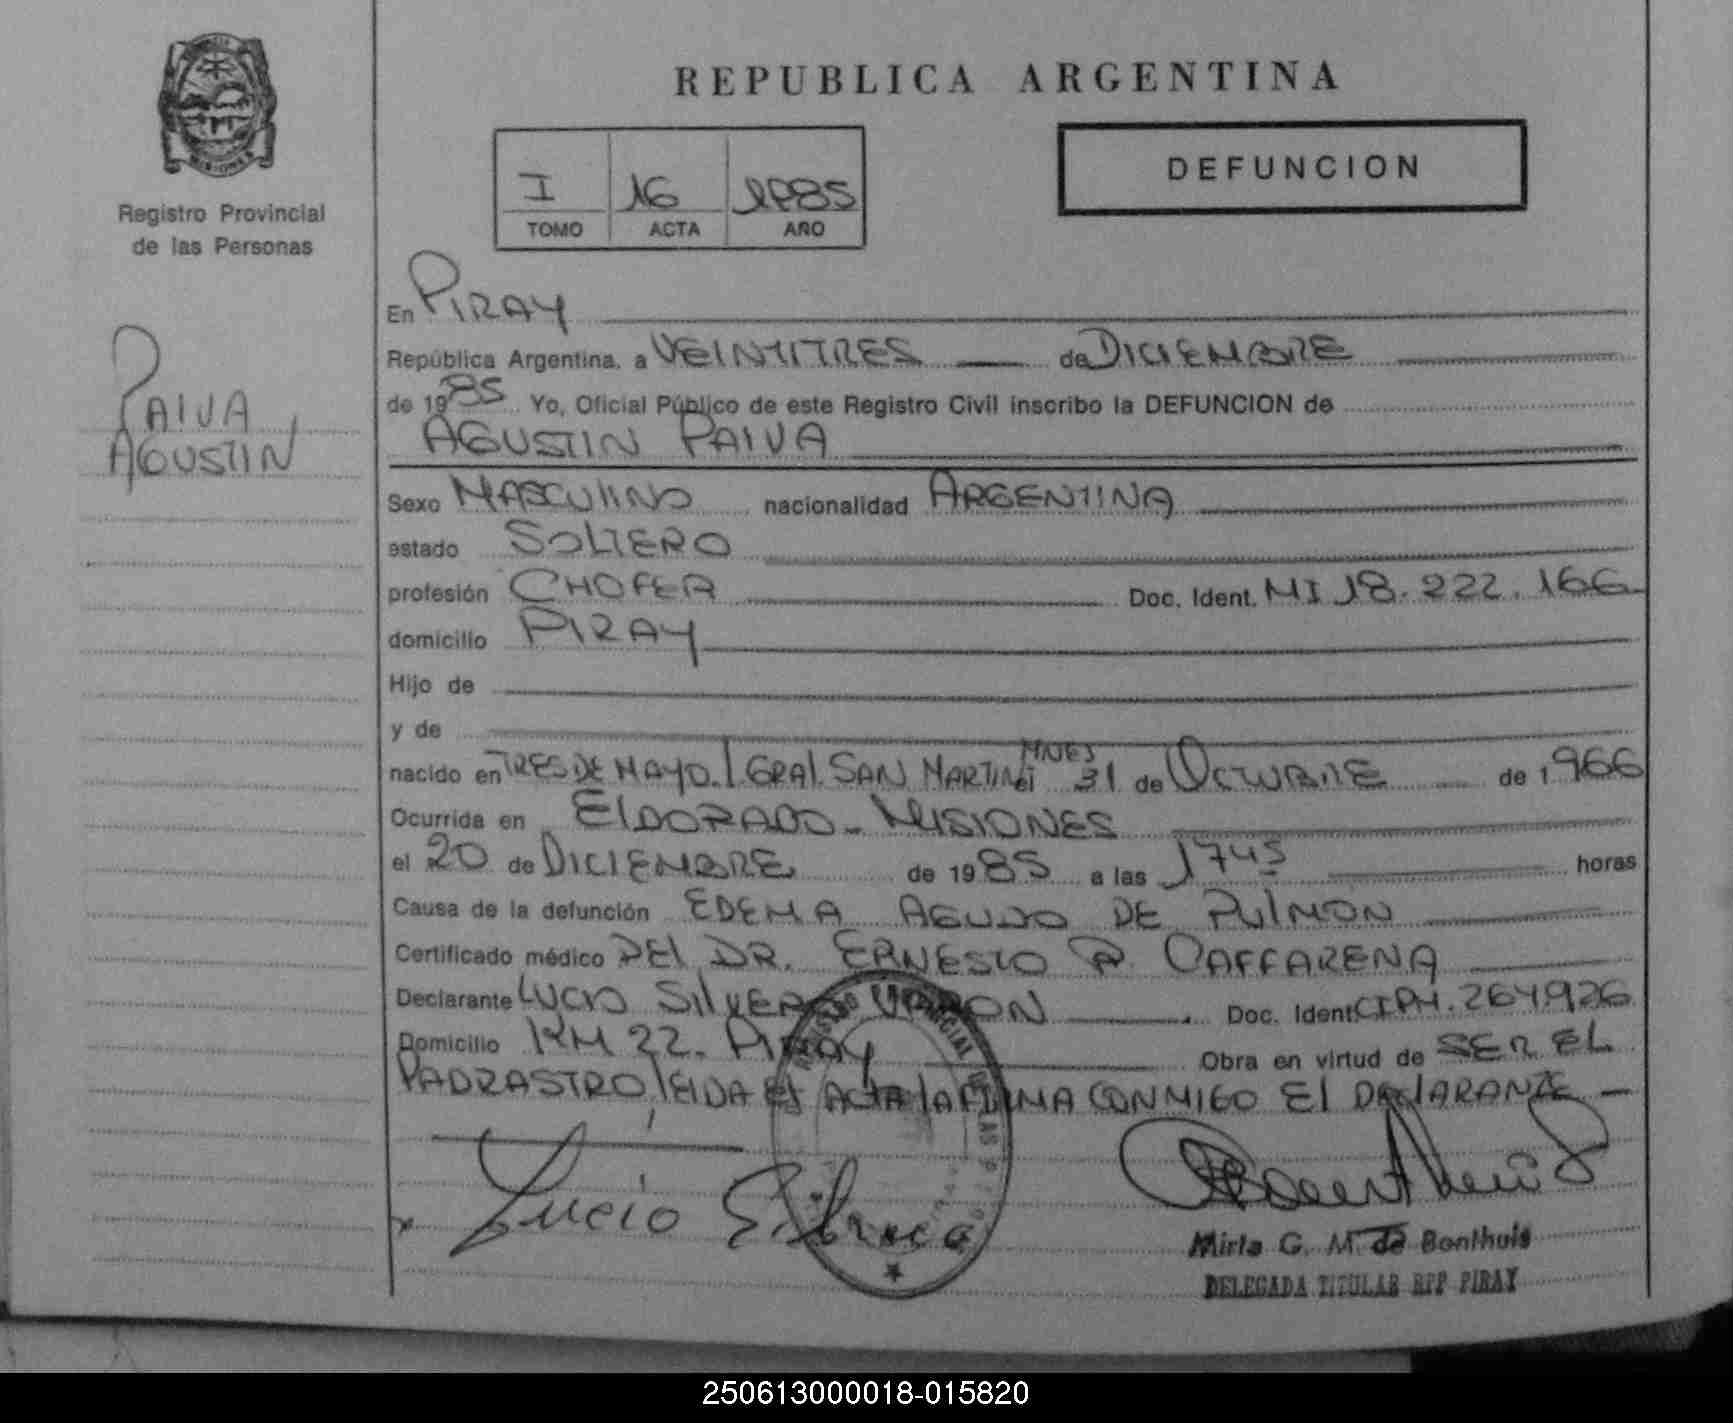 REPUBLICA ARGENTINA
I 16 1985
TOMO ACTA AÑO
DEFUNCION
MISIONES
Registro Provincial
de las Personas
PAIVA,
AGUSTIN
En PIRAY
República Argentina, a VEINTITRES de DICIEMBRE
de 1985 Yo, Oficial Público de este Registro Civil inscribo la DEFUNCION de
AGUSTIN PAIVA
Sexo MASCULINO nacionalidad ARGENTINA
estado SOLTERO
profesión CHOFER Doc. Ident. MI 18.222.166
domicilio PIRAY
Hijo de
y de
nacido en TRES DE MAYO/GRAL SAN MARTIN MNES el 31 de OCTUBRE de 1966
Ocurrida en ELDORADO - MISIONES
el 20 de DICIEMBRE de 1985 a las 1745 horas
Causa de la defunción EDEMA AGUDO DE PULMON
Certificado médico DEL DR. ERNESTO R. CAFFARENA
Declarante LUCIO Doc. Ident CIPM. 264.926
Domicilio KM 22. PIRAY Obra en virtud de SER EL
PADRASTRO/LEIDA EL ACTA LA FIRMA CONMIGO EL DECLARANTE
Lucio
Mirta G. M. de Bonthuis
DELEGADA TITULAR RPP PIRAY
250613000018-015820